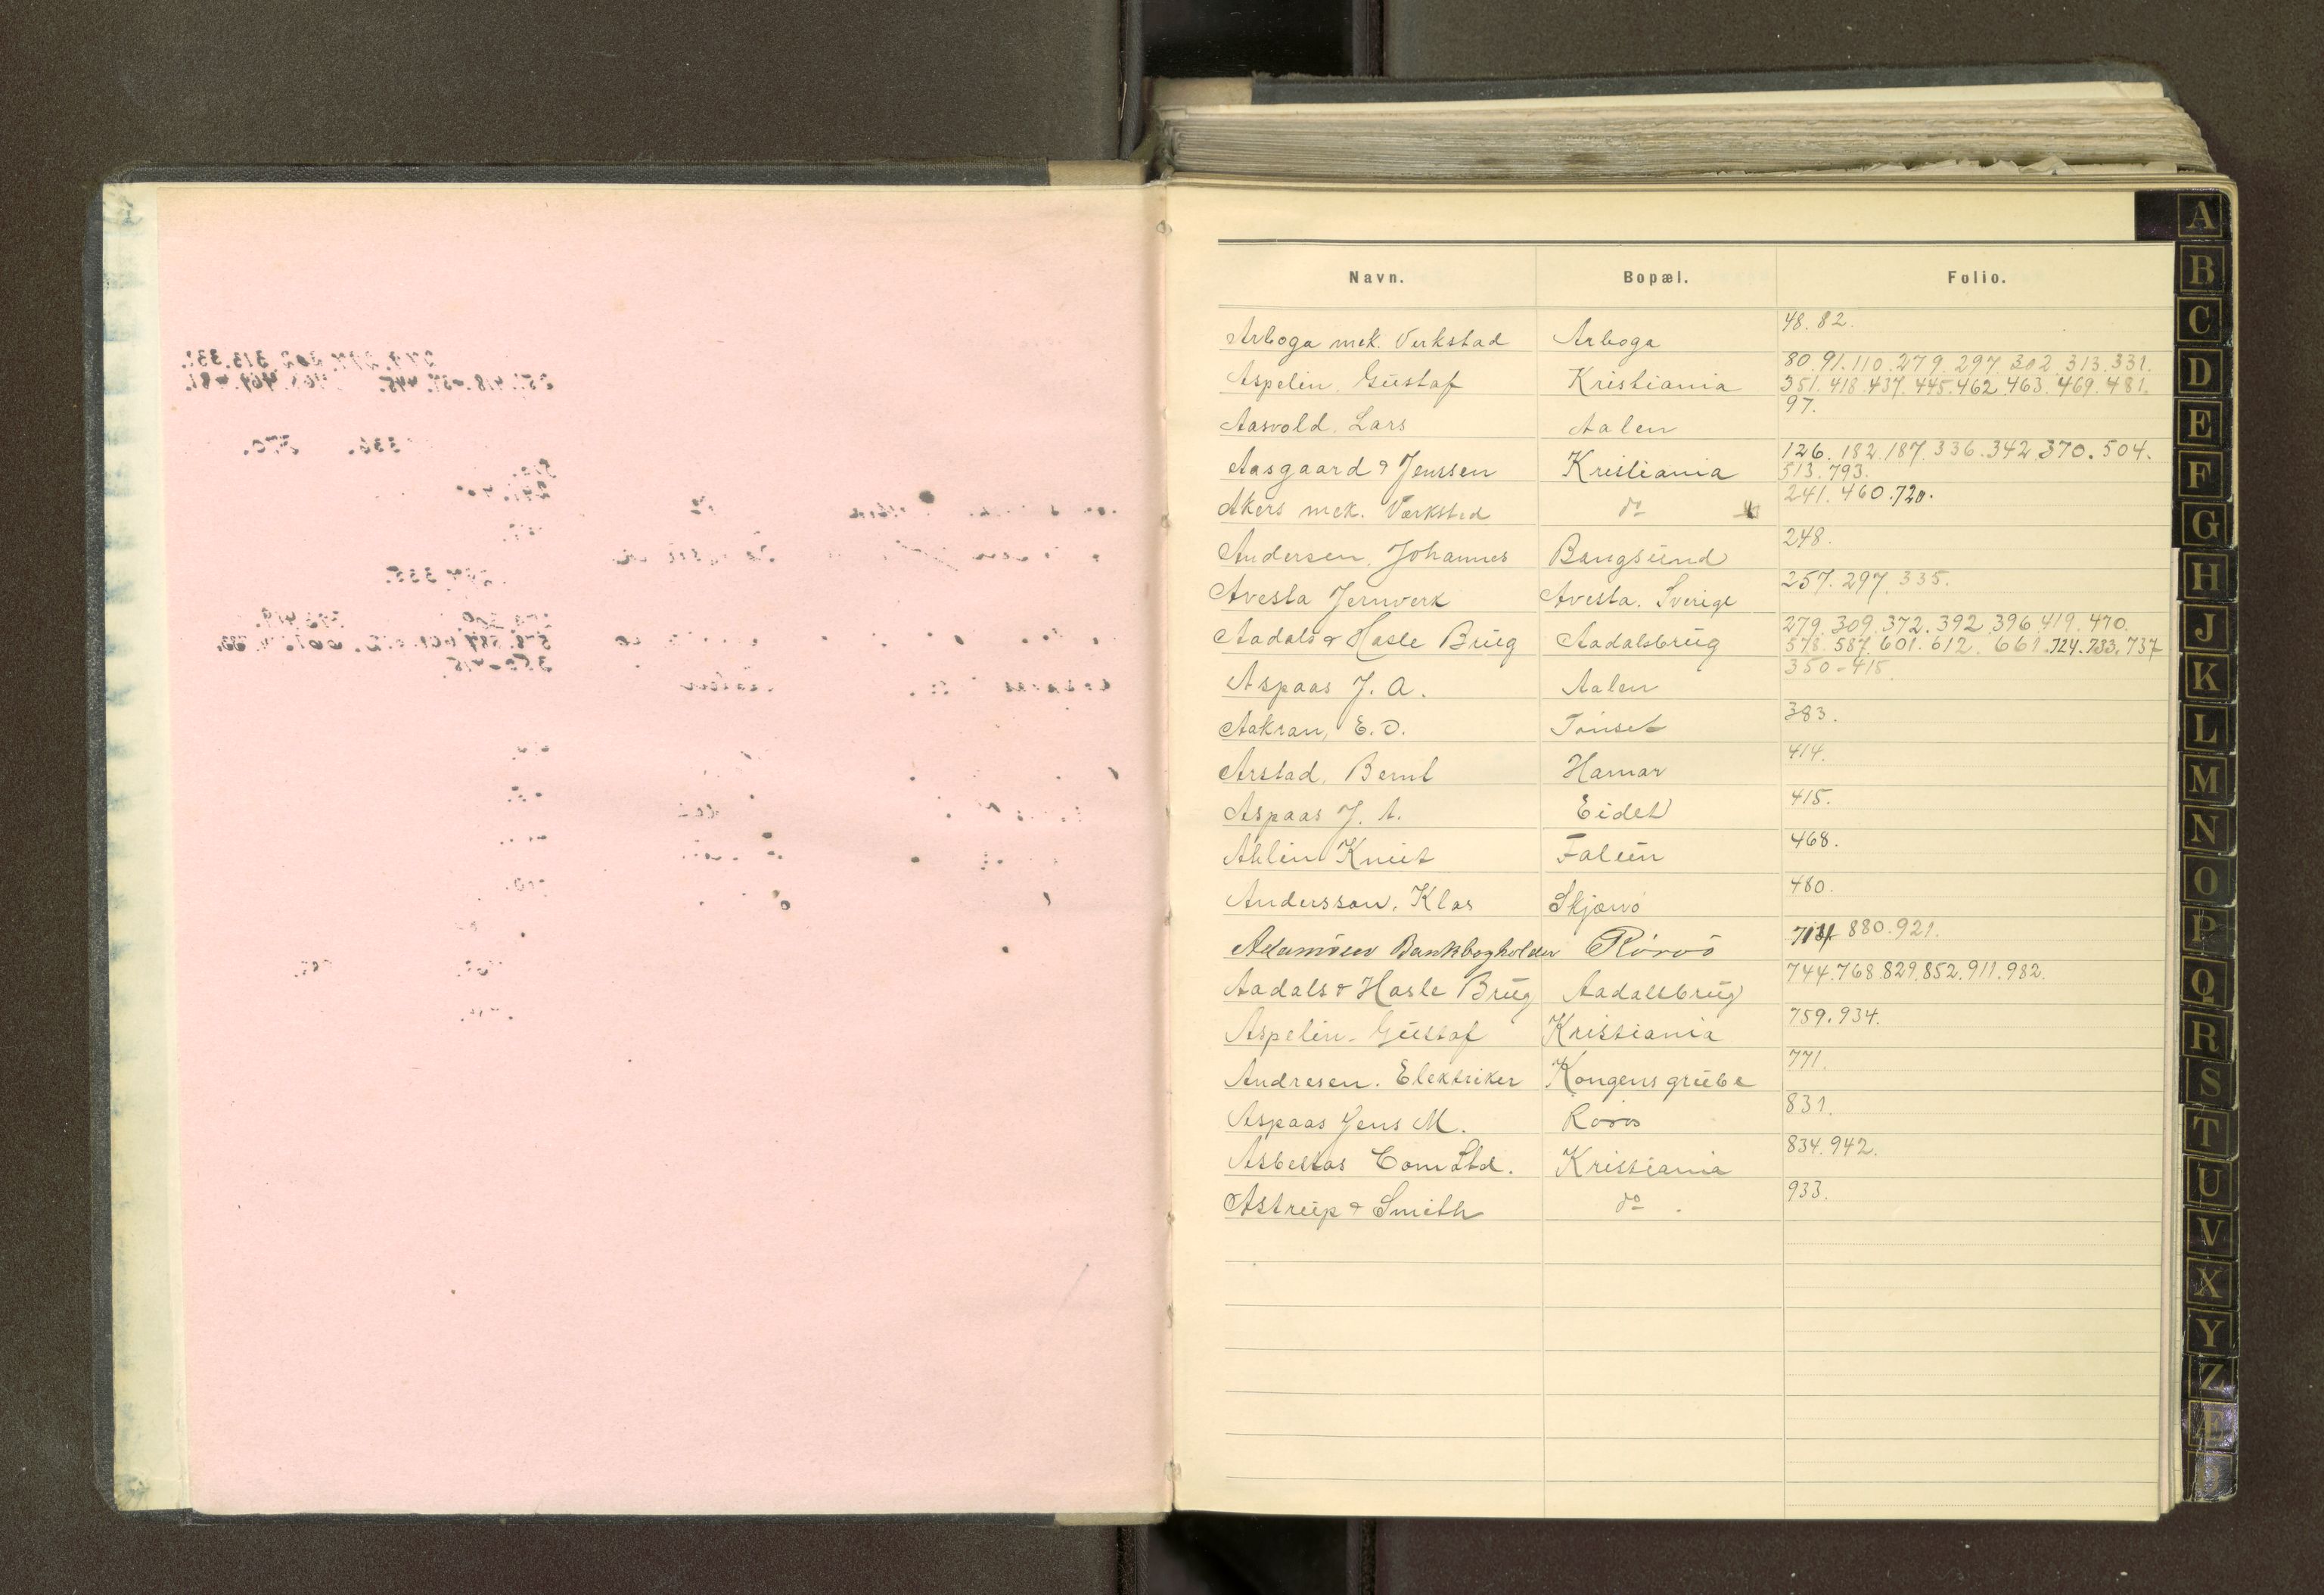 Navn. Bopæl. Folio.
Arboga mek. Verkstad Arboga 48. 82.
Aspelin. Gustaf Kristiania 80. 91. 110. 279. 297. 302. 313. 331.
351. 418. 437. 445. 462. 463. 469. 481.
Aasvold. Lars Aalen 97.
Aasgaard & Jenssen Kristiania 126. 182. 187. 336. 342. 370. 504.
513. 793.
Akers mek. Værksted do 241. 460. 720.
Andersen. Johannes Bangsund 248.
Avesta Jernverk Avesta. Sverige 257. 297. 335.
Aadals & Hasle Brug Aadalsbrug 279. 309. 372. 392. 396. 419. 470.
578. 587. 601. 612. 661. 724. 733. 737
Aspaas J. A. Aalen 350-415.
Aakran, E. O. Tönset 383.
Arstad. Bernt Hamar 414.
Aspaas J. A. Eidet 415.
Ahlin Knut Falun 468.
Andersson. Klas Skjærvö 480.
Adamsen Bankbogholder Röros 880. 921.
Aadals & Hasle Brug Aadalsbrug 744. 768. 829. 852. 911. 982.
Aspelin. Gustaf Kristiania 759. 934.
Andresen. Elektriker Kongens grube 771.
Aspaas Jens M. Röros 831.
Asbestos Com Ltd. Kristiania 834. 942.
Astrup & Smith do 933.
A
B
C
D
E
F
G
H
J
K
L
M
N
O
P
Q
R
S
T
U
V
X
Y
Z
Æ
Ø